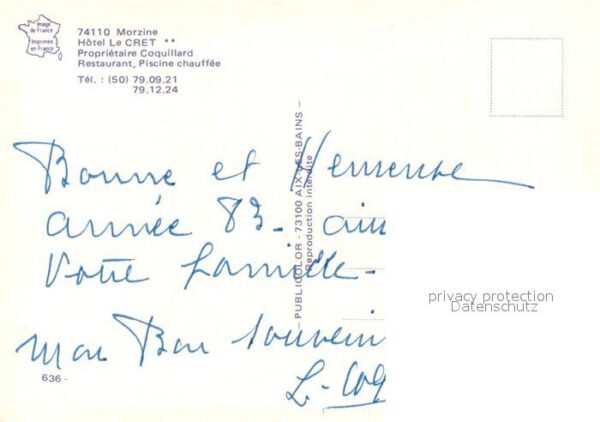 Image
de France
Imprimée
en France
74110 Morzine
Hôtel Le CRET **
Propriétaire Coquillard
Restaurant, Piscine chauffée
Tél. : (50) 79.09.21
79.12.24
— PUBLICOLOR - 73100 AIX-LES-BAINS —
Reproduction interdite
Bonne et Heureuse
année 83 - ain
Votre famille -
mon Bon souvenir
L. Coq
636 -
privacy protection
Datenschutz